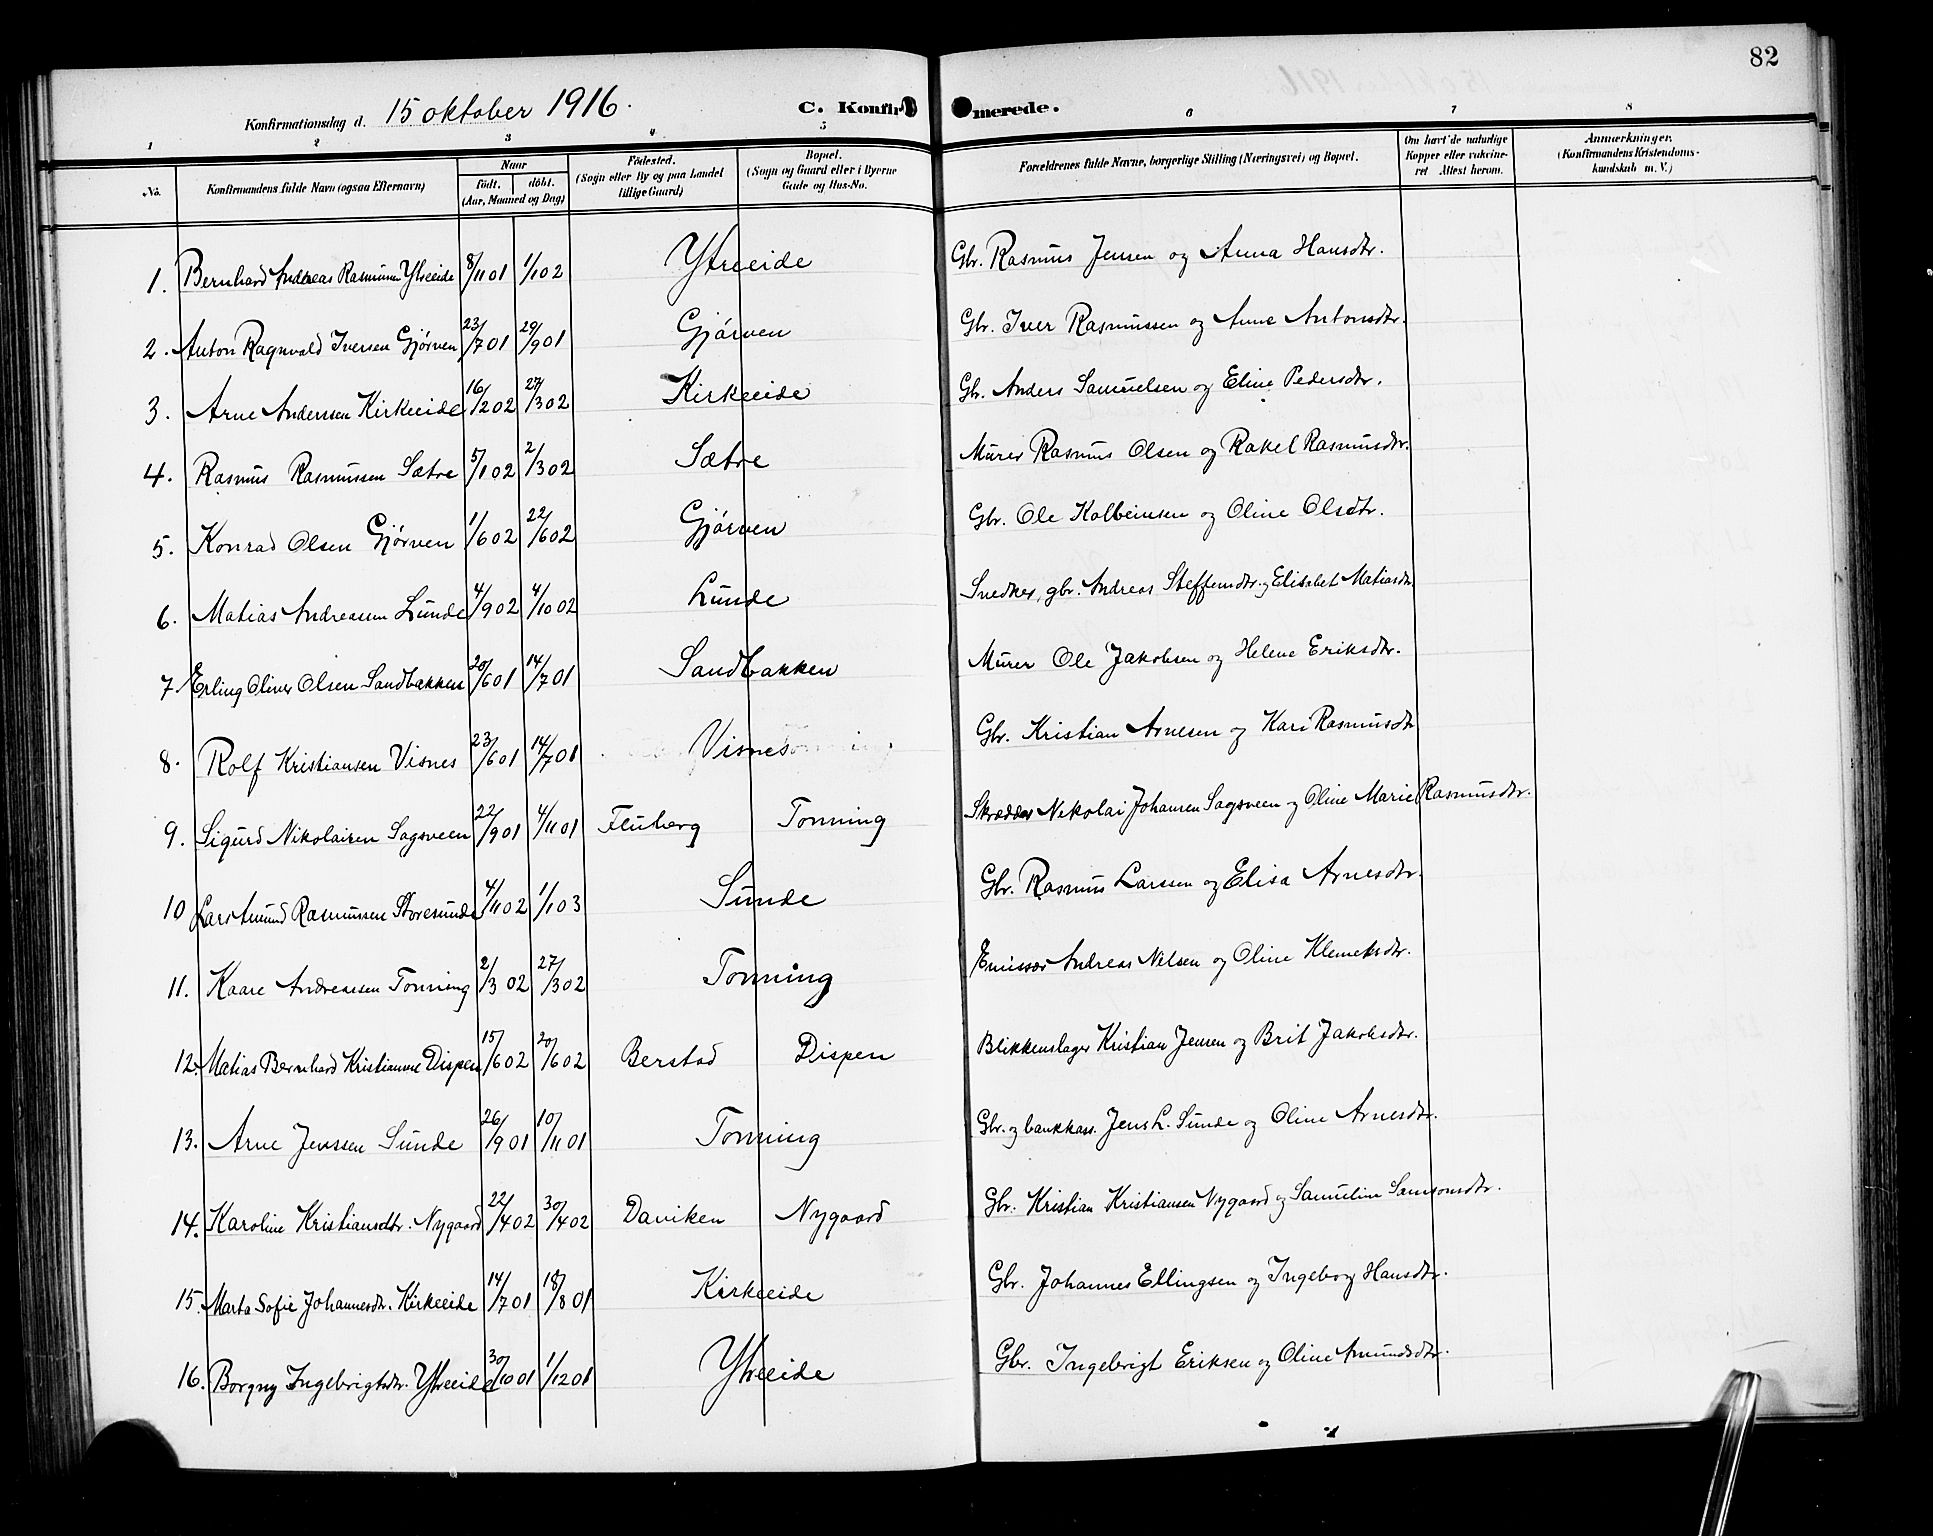 82
Konfirmationsdag d. 15 oktober 1916. C. Konfir merede.
1 2 3 4 5 6 7 8
No. Konfirmandens fulde Navn (ogsaa Efternavn) Naar født. døbt. (Aar, Maaned og Dag) Fødested. (Sogn eller By og paa Landet tillige Gaard) Bopæl. (Sogn og Gaard eller i Byerne Gade og Hus-No. Forældrenes fulde Navne, borgerlige Stilling (Næringsvei) og Bopæl. Om havt de naturlige Kopper eller vaccineret Attest herom. Anmærkninger. (Konfirmandens Kristendomskundskab m. V.)
1. Bernhard Andreas Rasmussen Ytreeide 8/11 01 1/1 02 Ytreeide Gbr. Rasmus Jensen og Anna Hansdtr.
2. Anton Ragnvald Iversen Gjørven 23/7 01 29/9 01 Gjørven Gbr. Iver Rasmussen og Anne Antonsdtr.
3. Arne Anderssen Kirkeeide 16/2 02 27/3 02 Kirkeeide Gb. Anders Samuelsen og Eline Pedersdtr.
4. Rasmus Rasmussen Sætre 5/1 02 2/3 02 Sætre Murer Rasmus Olsen og Rakel Rasmusdtr.
5. Konrad Olsen Gjørven 1/6 02 22/6 02 Gjørven Gbr. Ole Kolbeinsen og Oline Olsdtr.
6. Matias Andreassen Lunde 4/9 02 4/10 02 Lunde Snedker, gbr. Andreas Steffensdtr. og Elisabet Matiasdtr
7. Erling Oliver Olsen Sandbakken 20/6 01 14/7 01 Sandbakken Murer Ole Jakobsen og Helene Eriksdtr.
8. Rolf Kristiansen Visnes 23/6 01 14/7 01 Visnes Gbr. Kristian Arnesen og Kari Rasmusdtr
9. Sigurd Nikolaisen Sagsveen 22/9 01 4/11 01 Fluberg Tonning Skrædder Nikolai Johansen Sagsveen og Oline Marie Rasmusdtr.
10 Lars Amund Rasmussen Storesunde 4/11 02 1/1 03 Sunde Gbr. Rasmus Larssen og Elisa Arnesdtr.
11. Kaare Andreassen Tonning 2/3 02 27/3 02 Tonning Emissær Andreas Nilsen og Oline Klemetsdtr.
12. Matias Bernhard Kristiansen Dispen 15/6 02 20/6 02 Berstad Dispen Blikkenslager Kristian Jensen og Brit Jakobsdtr.
13. Arne Jenssen Sunde 26/9 01 10/11 01 Tonning Gbr. og bankkass. Jens L. Sunde og Oline Arnesdtr.
14. Karoline Kristiansdtr. Nygaard 22/4 02 30/4 02 Daviken Nygaard Gbr. Kristian Kristiansen Nygaard og Samueline Samsonsdtr.
15. Marta Sofie Johannesdtr. Kirkeeide 14/7 01 18/8 01 Kirkeeide Gbr. Johannes Ellingsen og Ingeborg Hansdtr.
16. Borgny Ingebrigtsdtr. Ytreeide 30/10 01 1/12 01 Ytreeide Gbr. Ingebrigt Eriksen og Oline Amundsdtr.